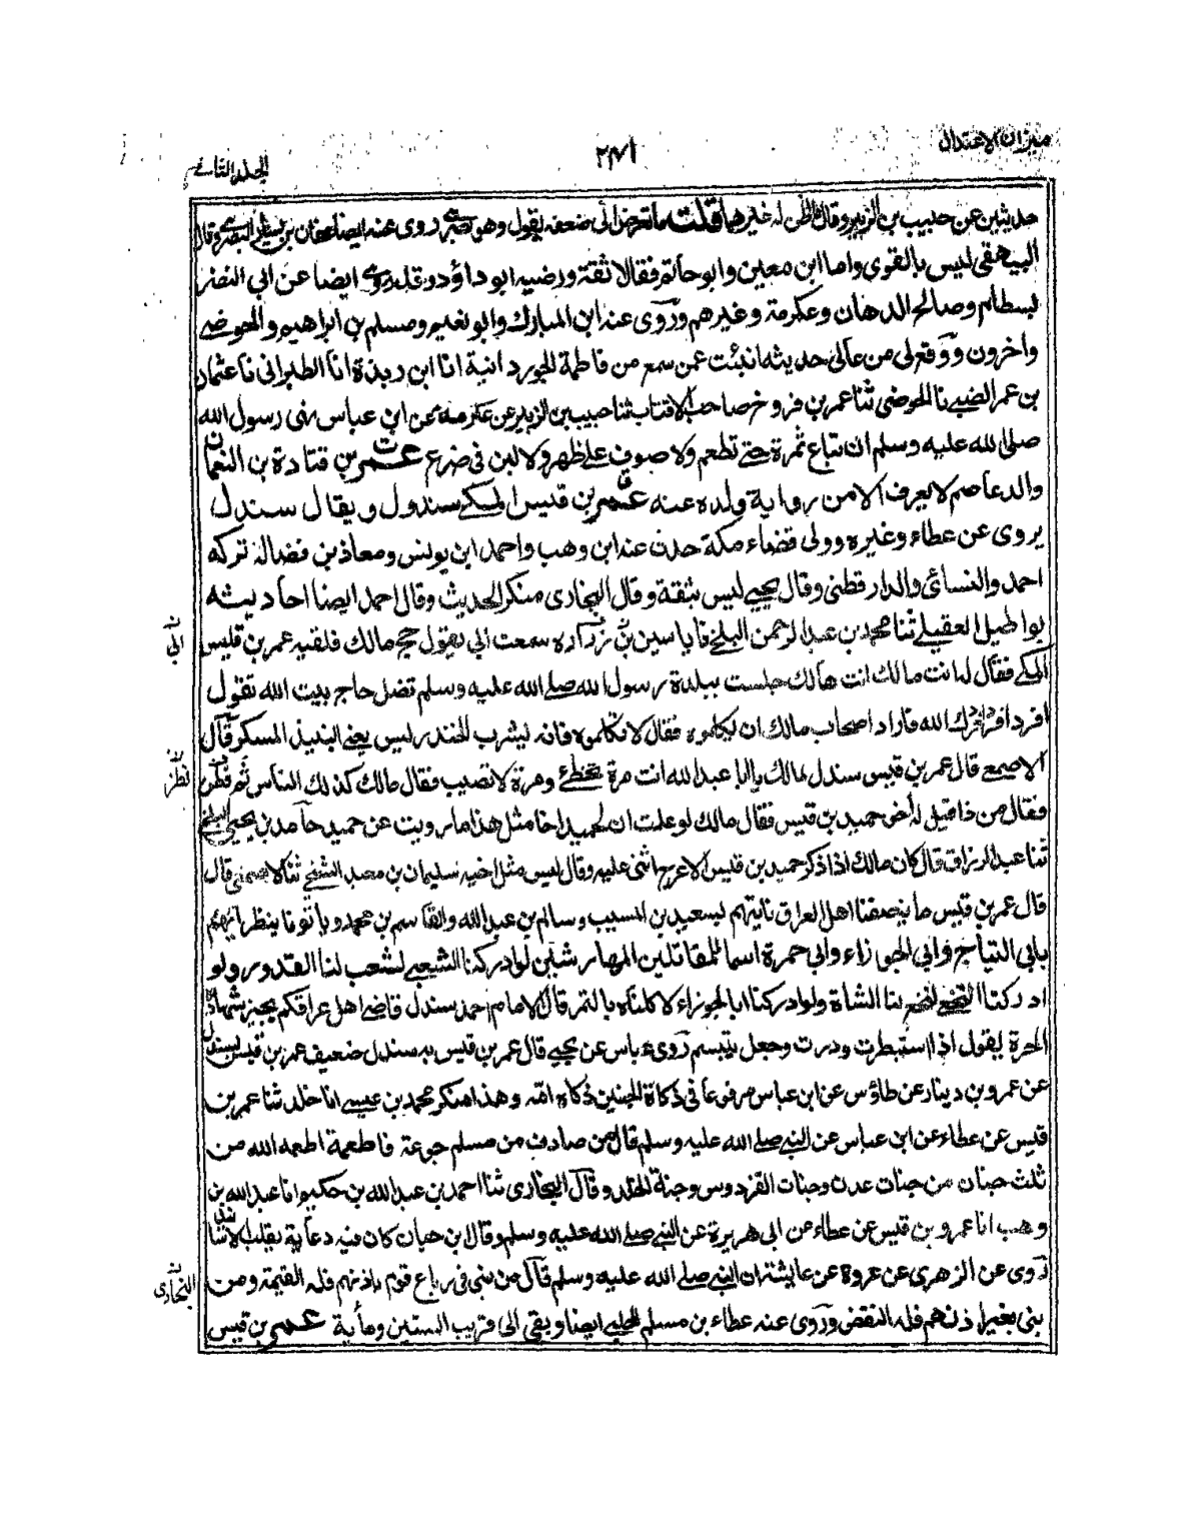 ميزان الاعتدال
٢٦١
الجلد الثاني
حديثين عن حبيب بن الزبير وقال اظن له غيرهما قلت ما تعرض الى ضعفه يقول وهو بصري روى عنه ايضا عفان بن البصري وقال
البيهقي ليس بالقوى واما ابن معين وابو حاتم فقالا ثقة ورضيه ابو داؤد وقد روى ايضا عن ابي النضر
بسطام وصالح الدهان وعكرمة وغيرهم وروى عنه ابن المبارك وابو نعيم ومسلم بن ابراهيم والحوضى
واخرون ووقع لى من عالى حديثه انبئت عمن سمع من فاطمة الجوزدانية انا ابن ريذة انا الطبرانى نا عثمان
بن عمر الضبي نا الحوضى ثنا عمر بن فروخ صاحب الاقتاب ثنا حبيب بن الزبير عن عكرمة عن ابن عباس نهى رسول الله
صلى الله عليه وسلم ان تباع ثمرة حتى تطعم ولا صوف على ظهر ولا لبن فى ضرع عمر بن قتادة بن النعمان
والد عاصم لا يعرف الا من رواية ولده عنه عمر بن قيس المكي سندول ويقال سندل
يروى عن عطاء وغيره وولى قضاء مكة حدث عنه ابن وهب واحمد ابن يونس ومعاذ بن فضالة تركه
احمد والنسائي والدارقطنى وقال يحيى ليس بثقة وقال البخارى منكر الحديث وقال احمد ايضا احاديثه
بواطيل العقيلى ثنا محمد بن عبد الرحمن البلخى نا ياسين بن زرارة سمعت ابي يقول حج مالك فلقيه عمر بن قيس
ابي
المكي فقال له انت مالك انت هالك جلست ببلدة رسول الله صلى الله عليه وسلم تضل حاج بيت الله تقول
افرد افرد افردك الله فاراد اصحاب مالك ان يكلموه فقال لا تكلموه فانه ليشرب الخندريس يعنى النبيذ المسكر وقال
الاصمعي قال عمر بن قيس سندل لمالك يا ابا عبد الله انت مرة تخطئ ومرة لا تصيب فقال مالك كذلك الناس ثم فطن
فطن
فقال من ذا قيل له اخى حميد بن قيس فقال مالك لو علمت ان لحميد اخا مثل هذا ما رويت عن حميد حامد بن يحيى البلخي
ثنا عبد الرزاق قال كان مالك اذا ذكر حميد بن قيس الاعرج اثنى عليه وقال ليس مثل اخيه سليمان بن معبد السنجى ثنا الاصمعى قال
قال عمر بن قيس ما ينصفنا اهل العراق ناتيهم بسعيد بن المسيب وسالم بن عبد الله والقاسم بن محمد ويأتونا بنظرائهم
بابى التياح وابي الجوزاء وابي حمزة اسماء المقاتلين المهارشين لو ادركنا الشعبى لشعب لنا القدور ولو
ادركنا النخعى لنخع لنا الشاة ولو ادركنا ابا الجوزاء لاكلناه بالتمر قال الامام احمد سندل قاضى اهل عراقكم يجيز شهادة
المرة يقول اذا استبطرت ودرت وجعل يتبسم روى عباس عن يحيى قال عمر بن قيس به سندل ضعيف عمر بن قيس سندل
عن عمرو بن دينار عن طاؤس عن ابن عباس مرفوعا فى ذكاة الجنين ذكاة امه وهذا منكر محمد بن عيسى انا خلد ثنا عمر بن
قيس عن عطاء عن ابن عباس عن النبي صلى الله عليه وسلم قال من صادف من مسلم جوعة فاطعمه اطعمه الله من
ثلث جنان من جنات عدن وجنات الفردوس وجنة الخلد وقال البخارى ثنا احمد بن عبد الله بن حكيم انا عبد الله بن
وهب انا عمرو بن قيس عن عطاء عن ابى هريرة عن النبي صلى الله عليه وسلم وقال ابن حبان كان فيه دعابة يقلب الاسانيد
روى عن الزهرى عن عروة عن عايشة ان النبي صلى الله عليه وسلم قال من بنى فى رباع قوم باذنهم فله القيمة ومن
البخارى
بنى بغير اذنهم فله النقض وروى عنه عطاء بن مسلم الحلبي ايضا وبقى الى قريب الستين ومأية عمر بن قيس